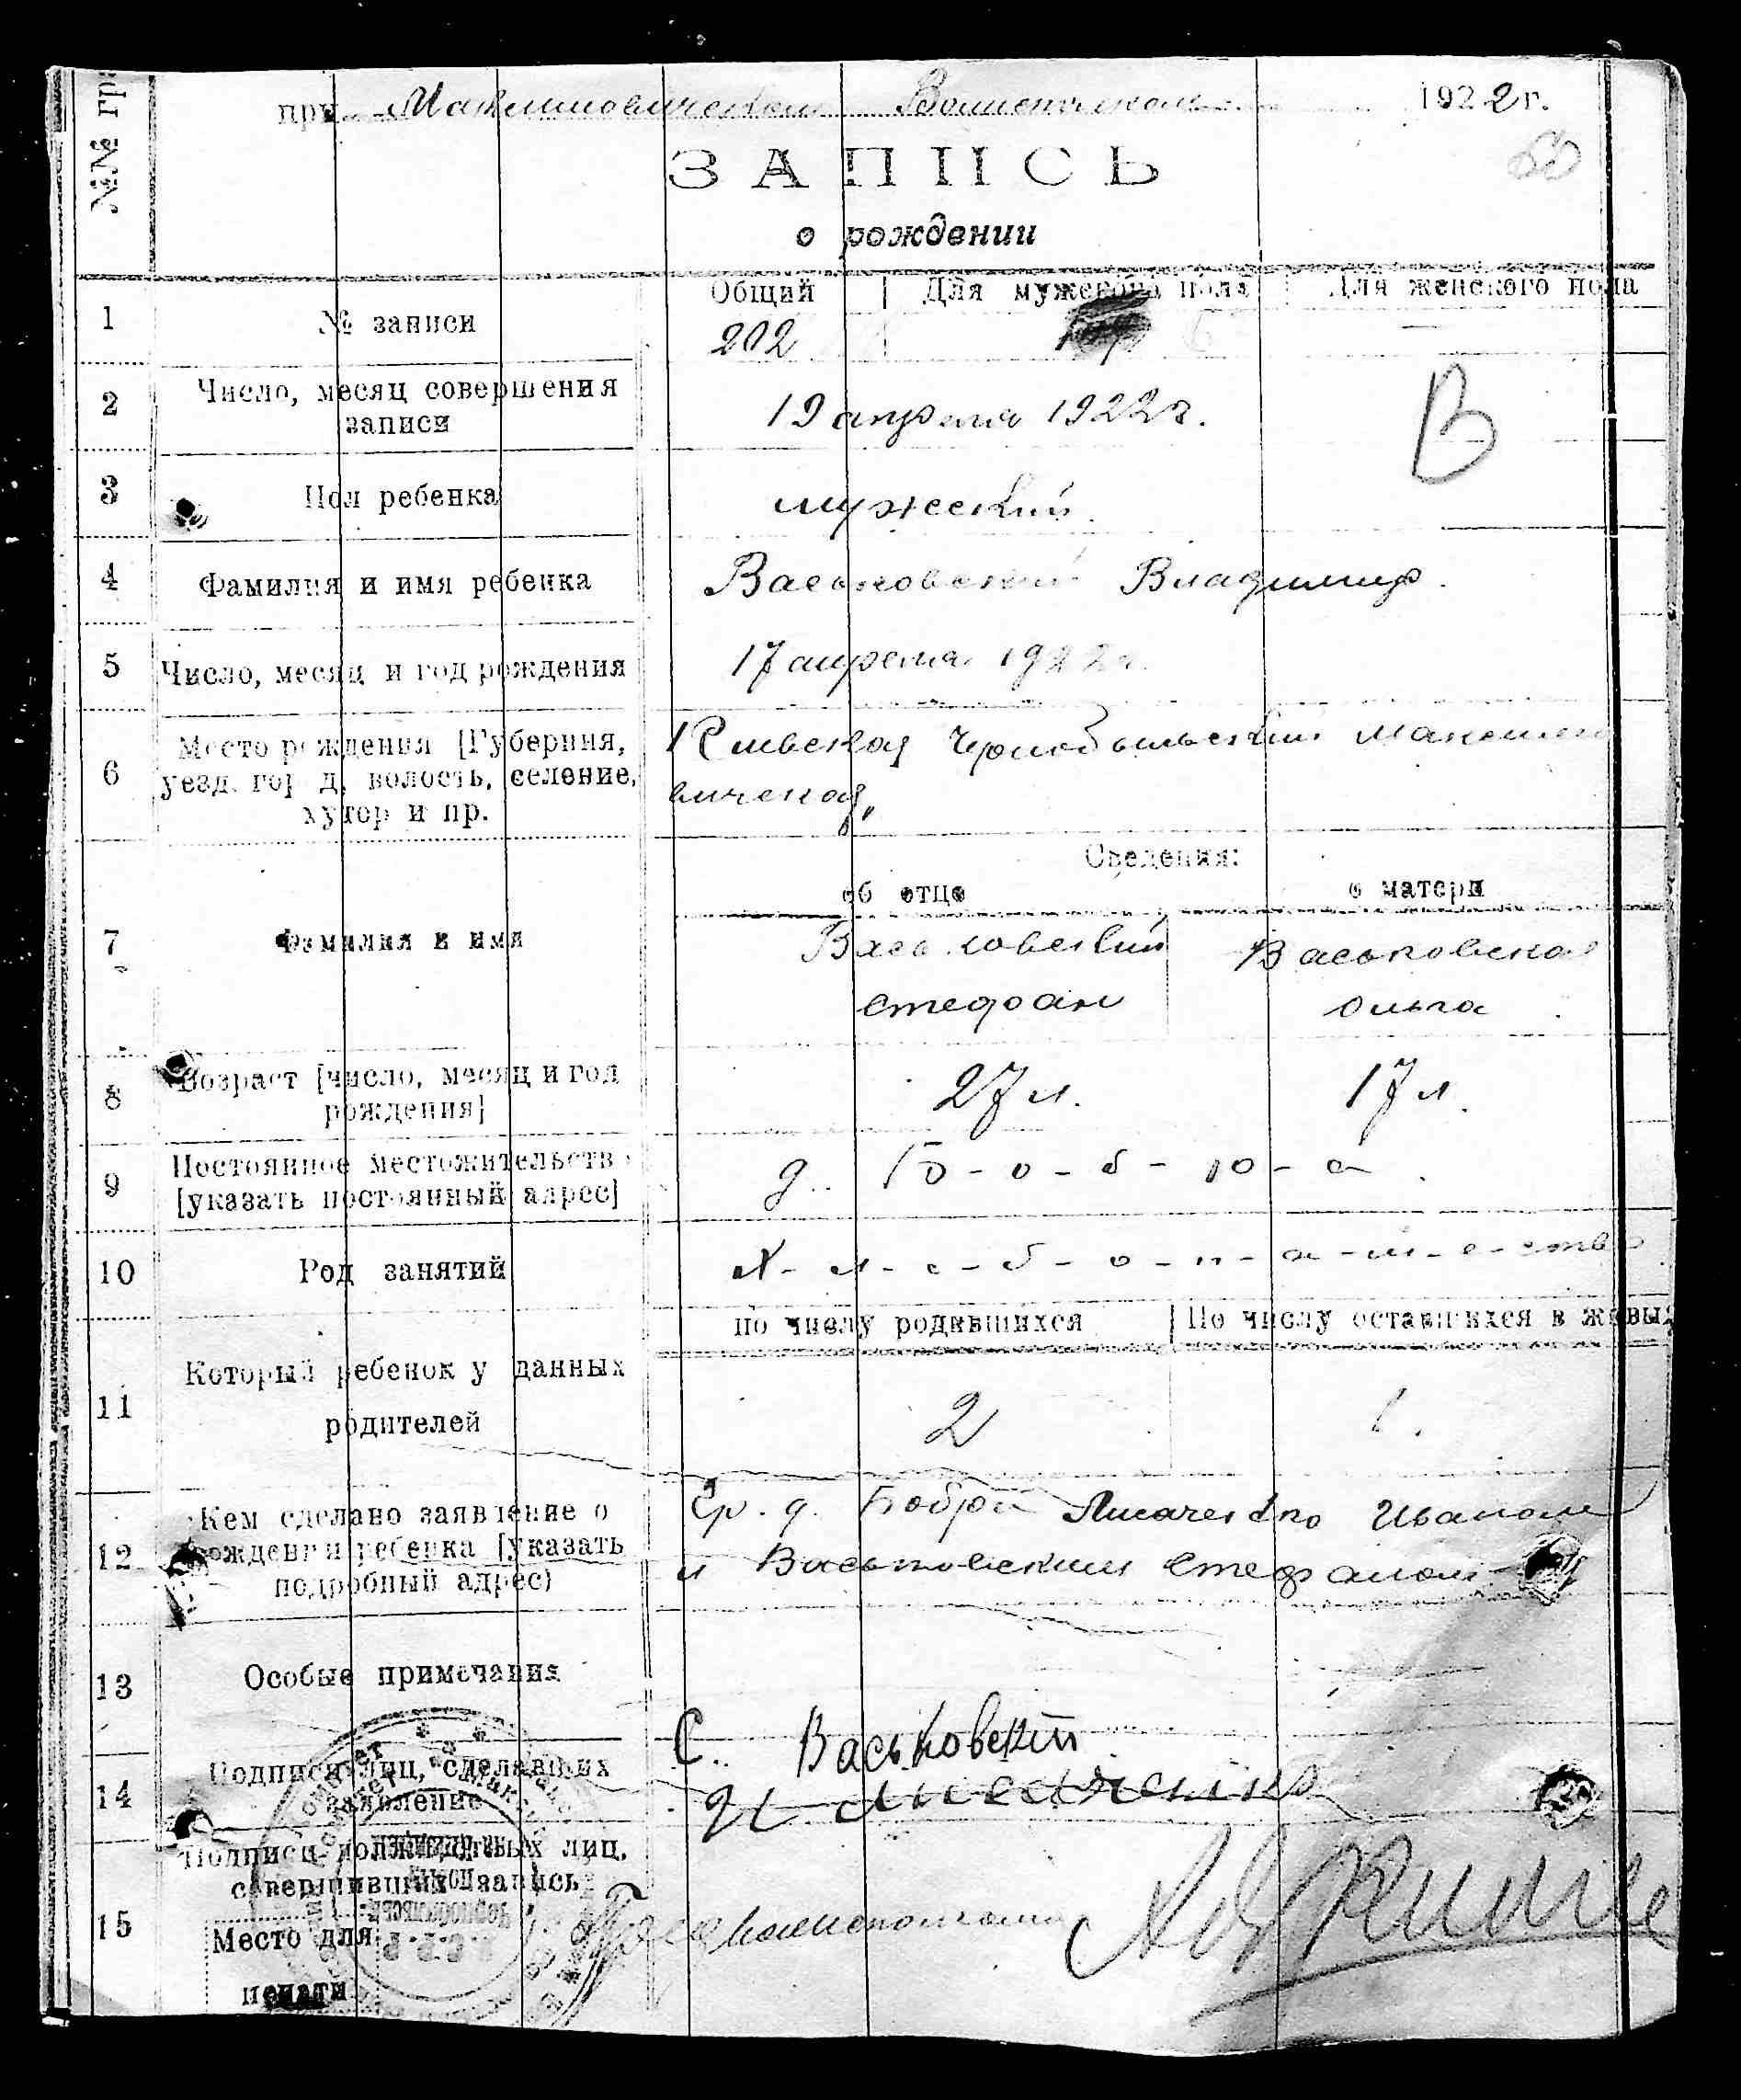 №№ гр
при Максимовическом Волисполкоме 1922 г.
ЗАПИСЬ
о рождении
Общий Для мужского пола Для женского пола
1 № записи 202 —
2 Число, месяц совершения
записи 19 апреля 1922 г. В
3 Пол ребенка мужеский
4 Фамилия и имя ребенка Васьковский Владимир.
5 Число, месяц и год рождения 17 апреля 1922 г.
6 Место рождения [Губерния, Киевская Чернобыльский Максимо
уезд, город, волость, селение, вическая,
хутор и пр.
Сведения:
об отце о матери
7 Фамилия и имя Васьковский Васьковская
Стефан Ольга
8 Возраст [число, месяц и год 27 л. 17 л.
рождения]
9 Постоянное местожительство д. Б-о-б-ю-а
[указать постоянный адрес]
10 Род занятий Х-л-е-б-о-п-а-ш-е-ство
по числу родившихся По числу оставшихся в живых
11 Который ребенок у данных 2 1.
родителей
12 Кем сделано заявление о Гр. д. Лисаченко Иваном
рождении ребенка [указать и Васьковским Стефаном
подробный адрес)
13 Особые примечания
С. Васьковский
14 Подписи лиц, сделавших И Лисаченко
заявление
Подписи должностных лиц,
совершивших запись
15 Место для
печати